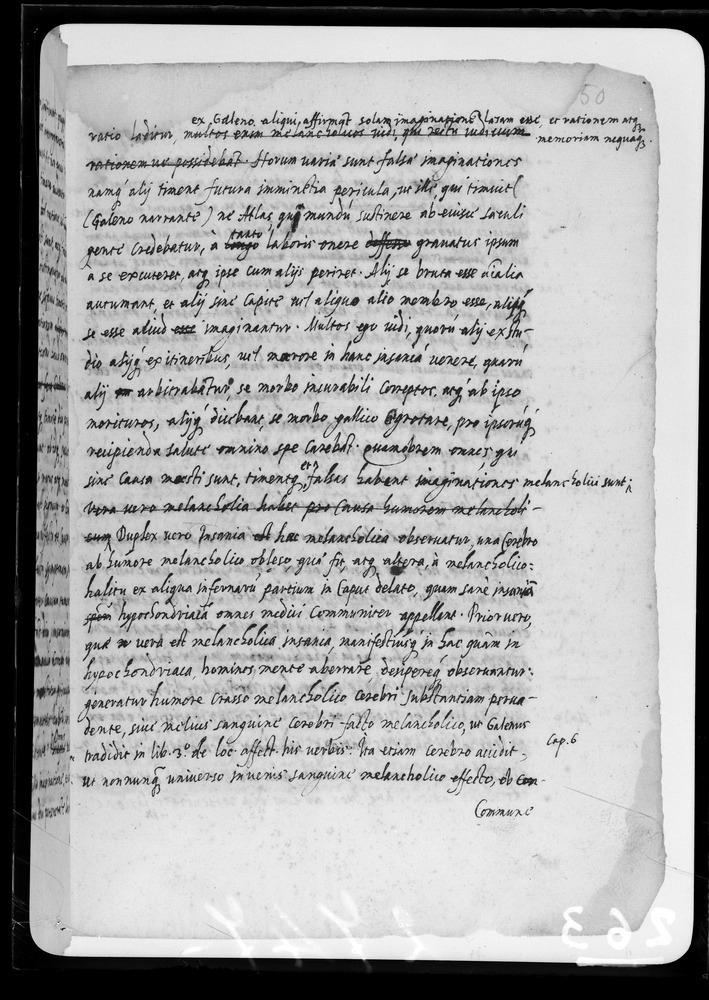 50
ex Galeno aliqui affirmãt solam imaginationẽ lasam esse, et rationem atq;
memoriam nequaq;.
ratio laditur, multos enim melancholicos vidi, qui rectu iudicium
rationem ue possidebãt. Horum varia sunt falsa imaginationes
namq; alij timent futura imminẽtia pericula, ut ille qui timuit
(Galeno narrante) ne Atlas qui mundũ sustinere ab eiusce saculi
gente credebatur, à tanto laboris onere grauatus ipsum
à se excuteret, atq; ipse cum alijs periret. Alij se bruta esse aĩalia
autumant, et alij sine capite uel aliquo alio membro esse, alijq;
se esse aliud esse imaginantur. Multos ego uidi, quorũ alij ex stu-
dio alijq; ex itineribus, uel mœrore in hanc insaniã uenere, quarũ
alij arbitrabãtur, se morbo insurabili correptos, atq; ab ipso
morituros, alijq; dicebant, se morbo gallico Egrotare, pro ipsorũq;
recipienda salute omnino spe carebãt. quamobrem omnes qui
sine causa mœsti sunt, timentq; et falsas habent imaginationes melancholici sunt;
vera vero melancholia habet pro causa humorem melancholi-
cum Duplex vero Insania est hac melancholica obseruatur, una Cerebro
ab humore melancholico obleso, qua fit, atq; altera, à melancholico
halitu ex aliqua infernarũ partium in Caput delato, quam sanè insaniã
hypochondriacã omnes medici Communiter appellant. Prior uero,
qua vera est melancholica insania, manifestiusq; in hac quàm in
hypochondriaca, homines mente aberrare, desipereq; obseruantur:
generatur humore Crasso melancholico Cerebri substantiam perua-
dente, siue melius sanguine Cerebri facto melancholico, ut Galenus
tradidit in lib. 3º de loc. affect. his verbis. Ita etiam Cerebro accidit,
Cap. 6
ut nonnunq; uniuerso in uenis sanguine melancholico effecto, ob Con-
Commune
263